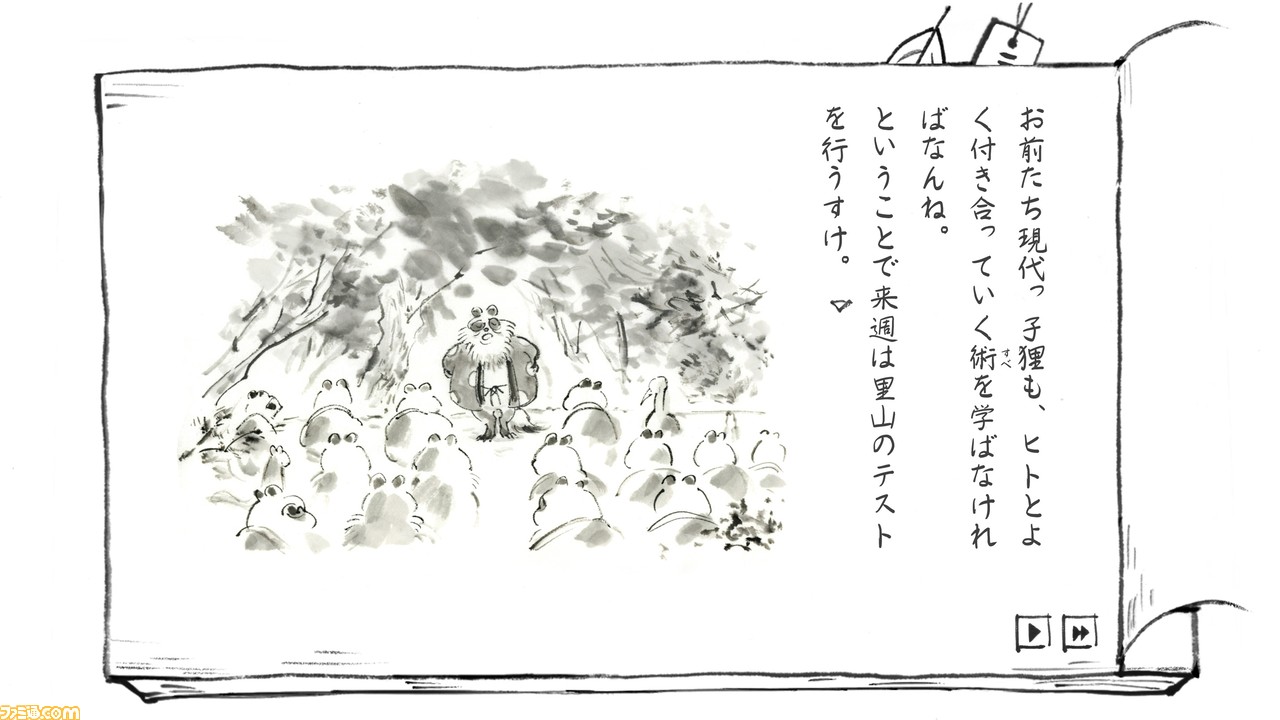 お前たち現代っ子狸も、ヒトとよ
く付き合っていく術を学ばなけれ
すべ
ばなんね。
ということで来週は里山のテスト
を行うすけ。
ファミ通.com